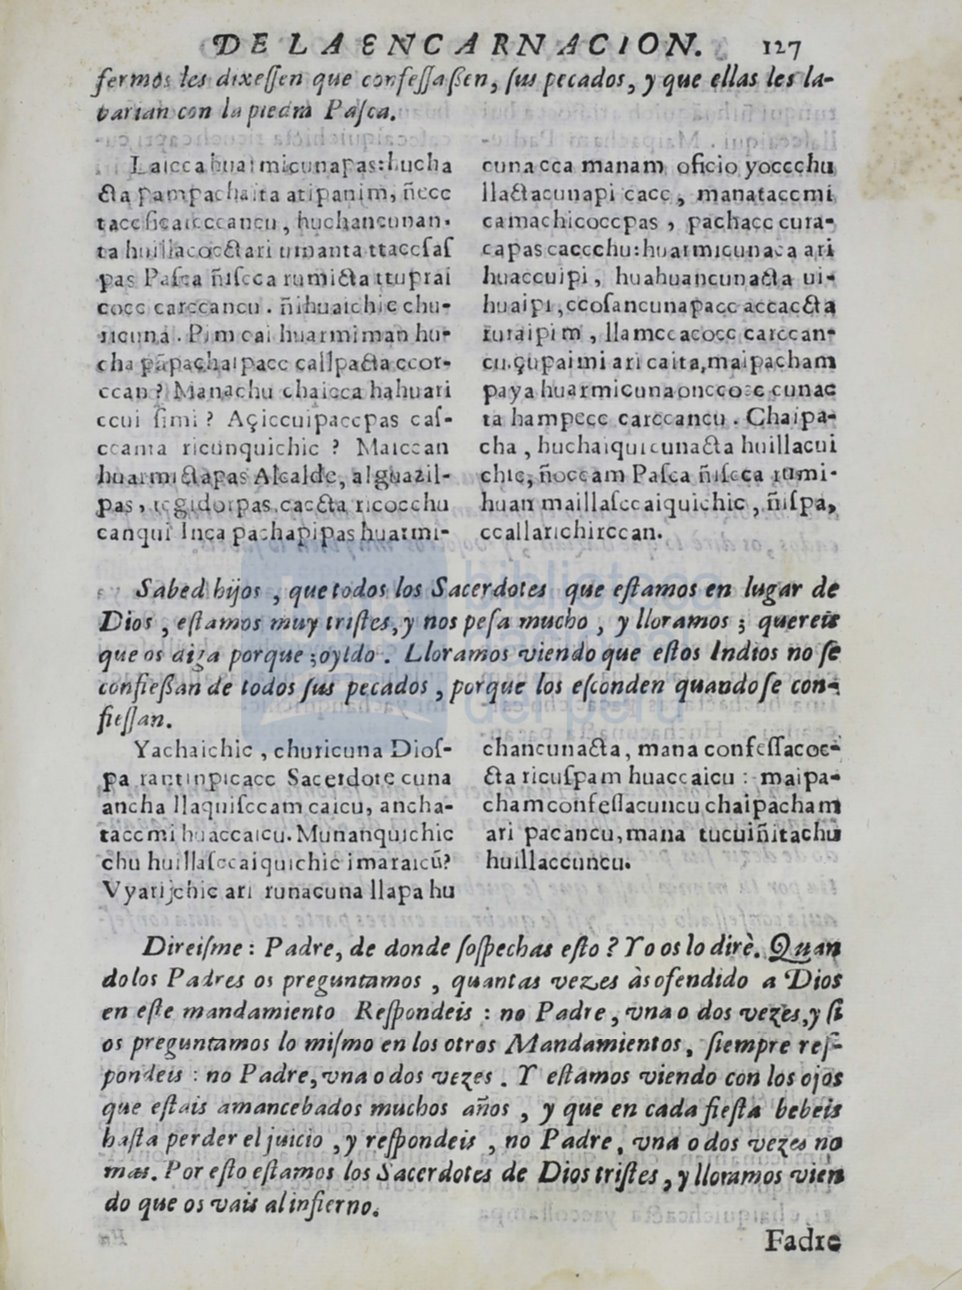 DE LA ENCARNACION. 127
fermos les dixeſſen que confeſſaßen, ſus pecados, y que ellas les la-
varian con la piedra Paſca.
Laicca huarmicunapas: hucha
cta pampachaita atipanim, ñecc
tacc ſicaicccancu, huchancunan-
ta huillacocctari umanta ttaccſaſ
pas Paſca ñiſcca rumicta ttuprai
cocc carccancu. ñihuaichic chu-
ricuna. Pim cai huarmiman hu-
cha pãpachaipacc callpacta ccor-
ccan? Manachu chaicca hahuari
ccui ſimi? Açiccuipaccpas caſ-
ccanta ricunquichic? Maiccan
huarmictapas Alcalde, alguazil-
pas, regidorpas, caccta ricocchu
canqui Inca pachapipas huarmi-
cunacca manam oficio yoccchu
llactacunapi cacc, manataccmi
camachicoccpas, pachacc cura-
capas caccchu: huarmicunaca ari
huaccuipi, huahuancunacta ui-
huaipi, ccoſancunapacc accacta
ruraipim, llamccacocc carccan-
cu. çupaimi ari caita, maipacham
paya huarmicuna onccocc cunac
ta hampecc carccancu. Chaipa-
cha, huchaiquicunacta huillacui
chic, ñoccam Paſca ñiſcca rumi-
huan maillaſccaiquichic, ñiſpa,
ccallarichirccan.
Sabed hijos, que todos los Sacerdotes que eſtamos en lugar de
Dios, eſtamos muy triſtes, y nos peſa mucho, y lloramos; quereis
que os diga porque; oyldo. Lloramos viendo que eſtos Indios no ſe
confießan de todos ſus pecados, porque los eſconden quando ſe con-
fieſſan.
Yachaichic, churicuna Dioſ-
pa rantinpicacc Sacerdote cuna
ancha llaquiſccam caicu, ancha-
taccmi huaccaicu. Munanquichic
chu huillaſccaiquichic imaraicũ?
Vyarijchic ari runacuna llapa hu
chancunacta, mana confeſſacoc-
cta ricuſpam huaccaicu: maipa-
cham confeſſacuncu chaipacham
ari pacancu, mana tucuiñitachu
huillaccuncu.
Direiſme: Padre, de donde ſoſpechas eſto? Yo os lo dirè. Quan
do los Padres os preguntamos, quantas vezes às ofendido a Dios
en eſte mandamiento Reſpondeis: no Padre, vna o dos vezes, y ſi
os preguntamos lo miſmo en los otros Mandamientos, ſiempre reſ-
pondeis: no Padre, vna o dos vezes. Y eſtamos viendo con los ojos
que eſtais amancebados muchos años, y que en cada fieſta bebeis
haſta perder el juicio, y reſpondeis, no Padre, vna o dos vezes no
mas. Por eſto eſtamos los Sacerdotes de Dios triſtes, y lloramos vien
do que os vais al infierno.
Fadre
biblioteca
nacional
del perú